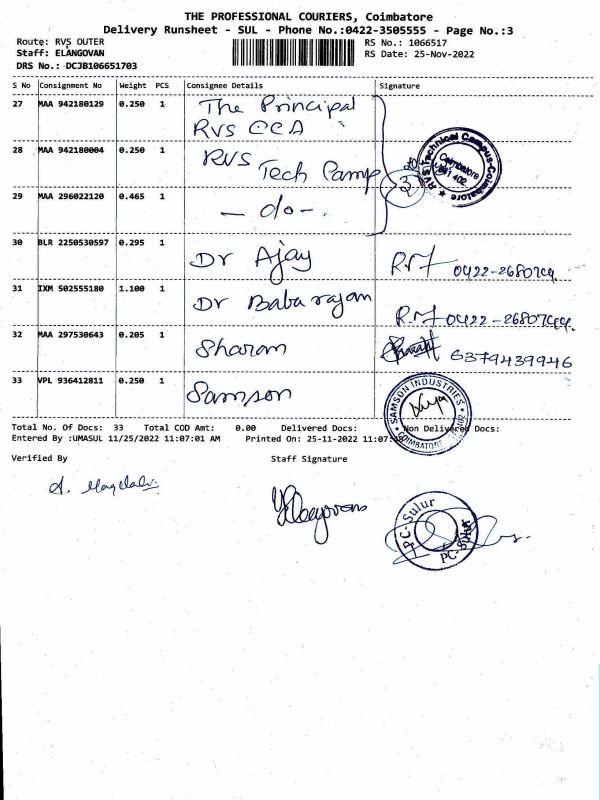 THE PROFESSIONAL COURIERS, Coimbatore
Delivery Runsheet - SUL - Phone No.:0422-3505555 - Page No.:3
Route: RVS OUTER
Staff: ELANGOVAN
DRS No.: DCJB106651703
RS No.: 1066517
RS Date: 25-Nov-2022
S No Consignment No Weight PCS Consignee Details Signature
27 MAA 942180129 0.250 1 The Principal
RVS CCA
28 MAA 942180004 0.250 1 RVS
Tech Camp
RVS Technical Campus-Coimbatore
Coimbatore
641 402.
29 MAA 296022120 0.465 1 - do -.
30 BLR 2250530597 0.295 1 Dr Ajay
31 IXM 502555180 1.100 1 Dr Baba rajan
32 MAA 297530643 0.205 1 Sharon 6379439946
33 VPL 936412811 0.250 1 Samson
SAMSON INDUSTRIES
Total No. Of Docs: 33 Total COD Amt: 0.00 Delivered Docs: Non Delivered Docs:
Entered By :UMASUL 11/25/2022 11:07:01 AM Printed On: 25-11-2022
Verified By Staff Signature
PC-Sulur
PC-Sulur